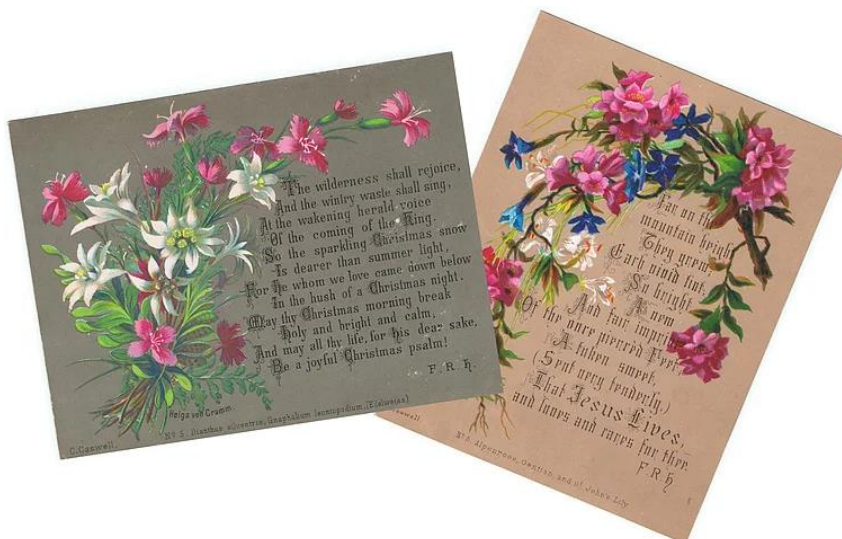 The wilderness shall rejoice,
And the wintry waste shall sing,
At the wakening herald voice
Of the coming of the King.
So the sparkling Christmas snow
Is dearer than summer light,
For he whom we love came down below
In the hush of a Christmas night.
May thy Christmas morning break
Holy and bright and calm,
And may all thy life, for his dear sake,
Be a joyful Christmas psalm!
F. R. H.
Helga von Cramm.
C. Caswell.
No 5. Dianthus silvestris, Gnaphalium leontopodium, (Edelweiss)
Far on the
mountain height
They grew,
Each vivid hue
So bright
A new
And fair
Of the once pierced Feet,
A token sweet,
(Sent very tenderly,)
That Jesus Lives,
and loves and cares for thee.
F R H
No 6. Alpenrose, Gentian, and St John's Lily